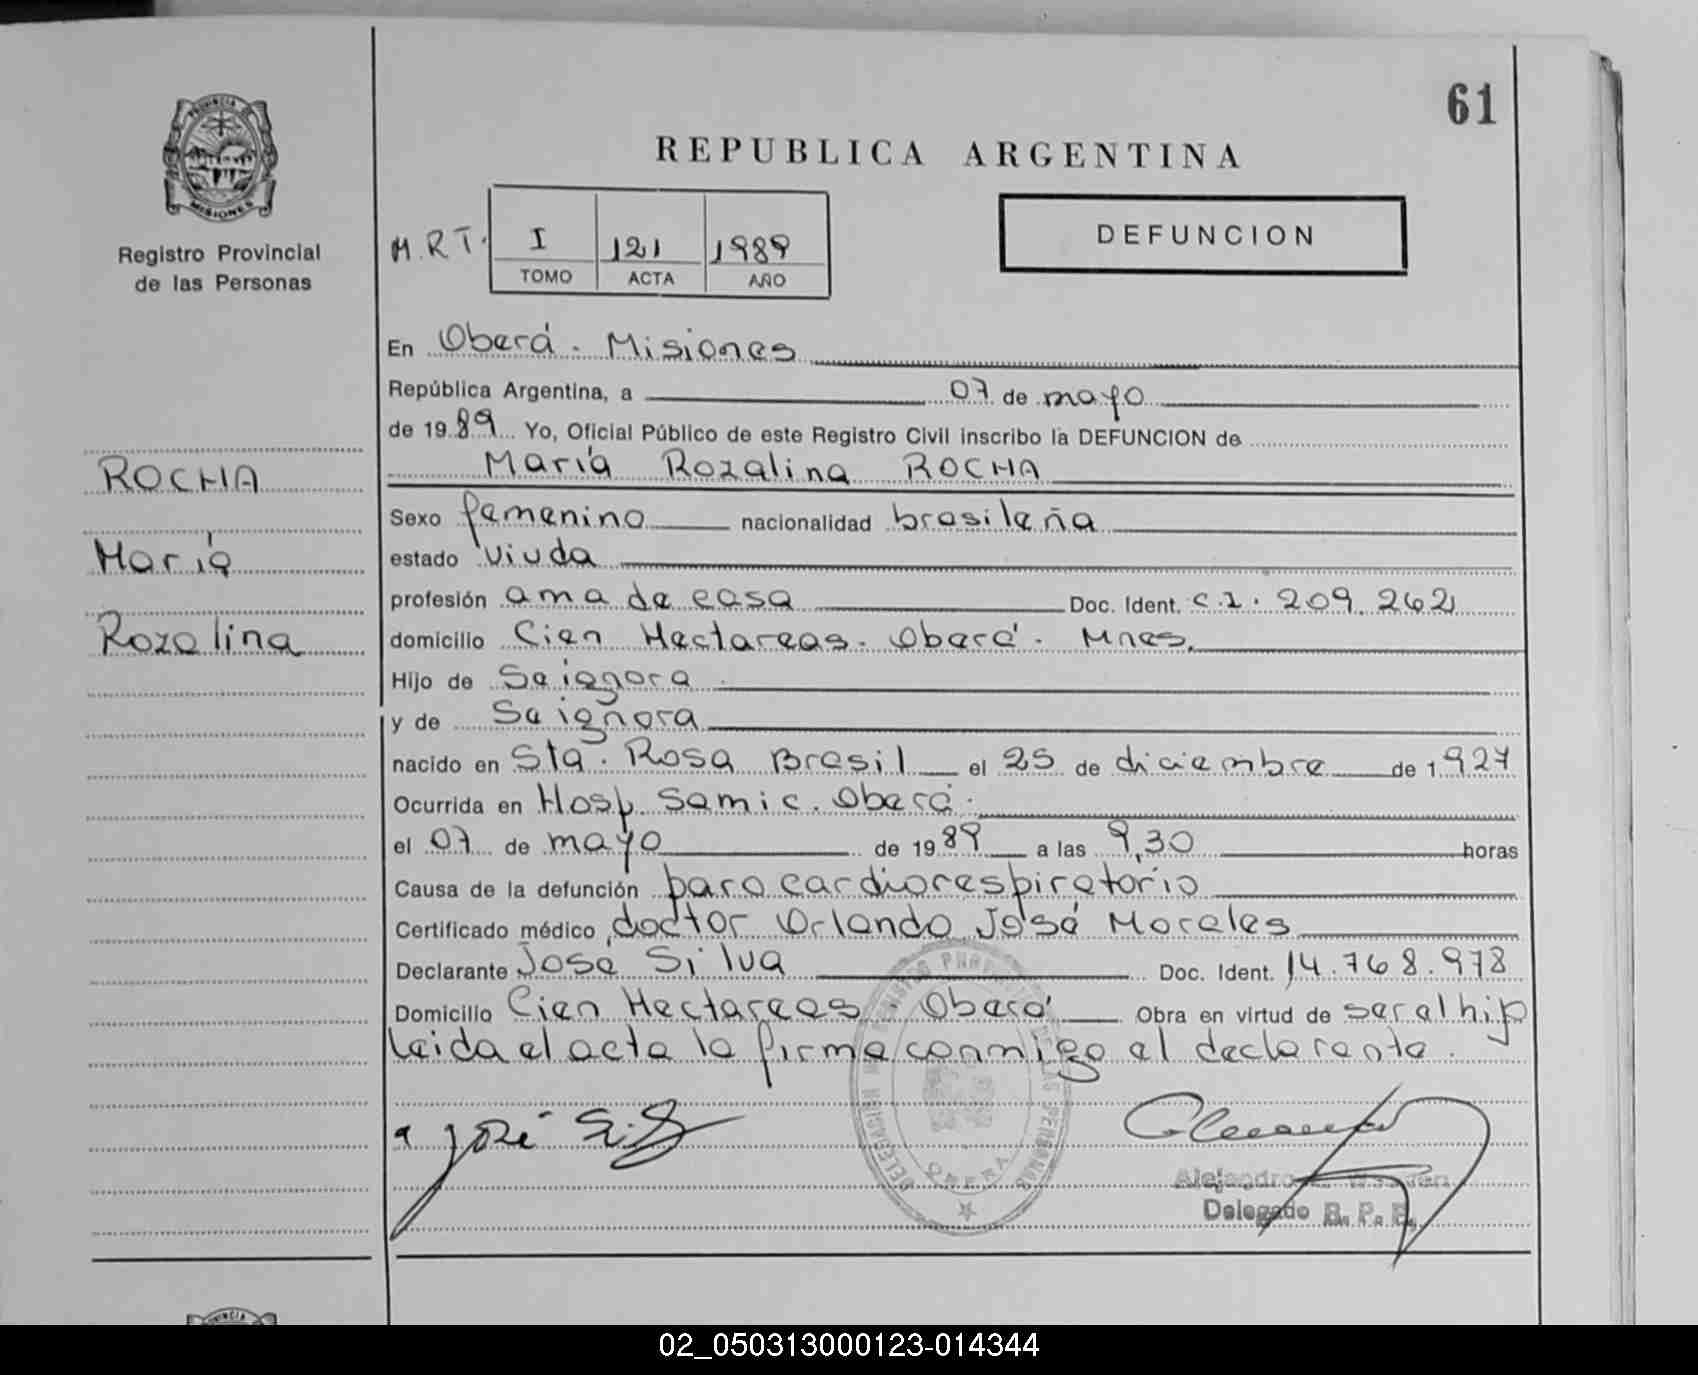 61
PROVINCIA DE
MISIONES
Registro Provincial
de las Personas
REPUBLICA ARGENTINA
M.R.T. I 121 1989
TOMO ACTA AÑO
DEFUNCION
ROCHA
María
Rozalina
En Oberá. Misiones
República Argentina, a 07 de mayo
de 1989 Yo, Oficial Público de este Registro Civil inscribo la DEFUNCION de
María Rozalina ROCHA
Sexo femenino nacionalidad brasileña
estado viuda
profesión ama de casa Doc. Ident. C.I. 209.262
domicilio Cien Hectareas. Oberá. Mnes.
Hijo de Se ignora
y de Se ignora
nacido en Sta. Rosa Brasil el 25 de diciembre de 1927
Ocurrida en Hosp. Samic. Oberá.
el 07 de mayo de 1989 a las 9,30 horas
Causa de la defunción paro cardiorespiratorio
Certificado médico doctor Orlando José Morales
Declarante José Silva Doc. Ident. 14.768.978
Domicilio Cien Hectareas Oberá Obra en virtud de ser el hijo
Leida el acta la firma conmigo el declarante.
José
DELEGACION REGISTRO PROVINCIAL DE LAS PERSONAS
OBERA
Alejandro
Delegado R. P. P.
02_050313000123-014344